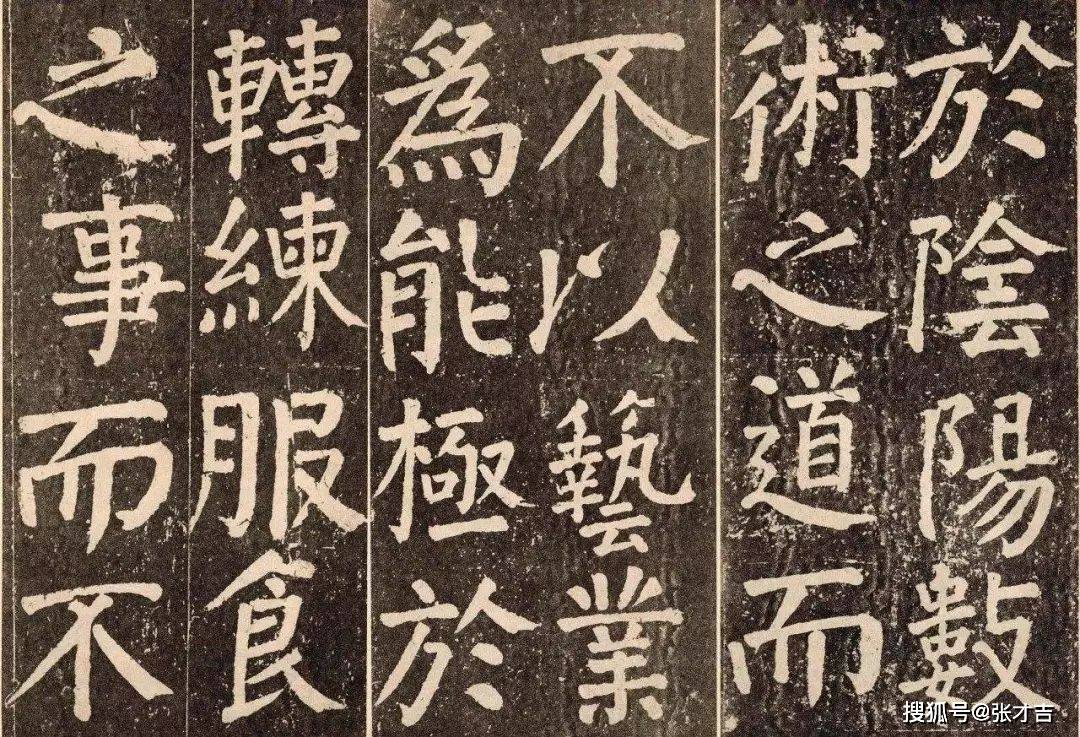 於陰陽數
術之道而
不以藝業
為能極於
轉練服食
之事而不
搜狐号@张才吉